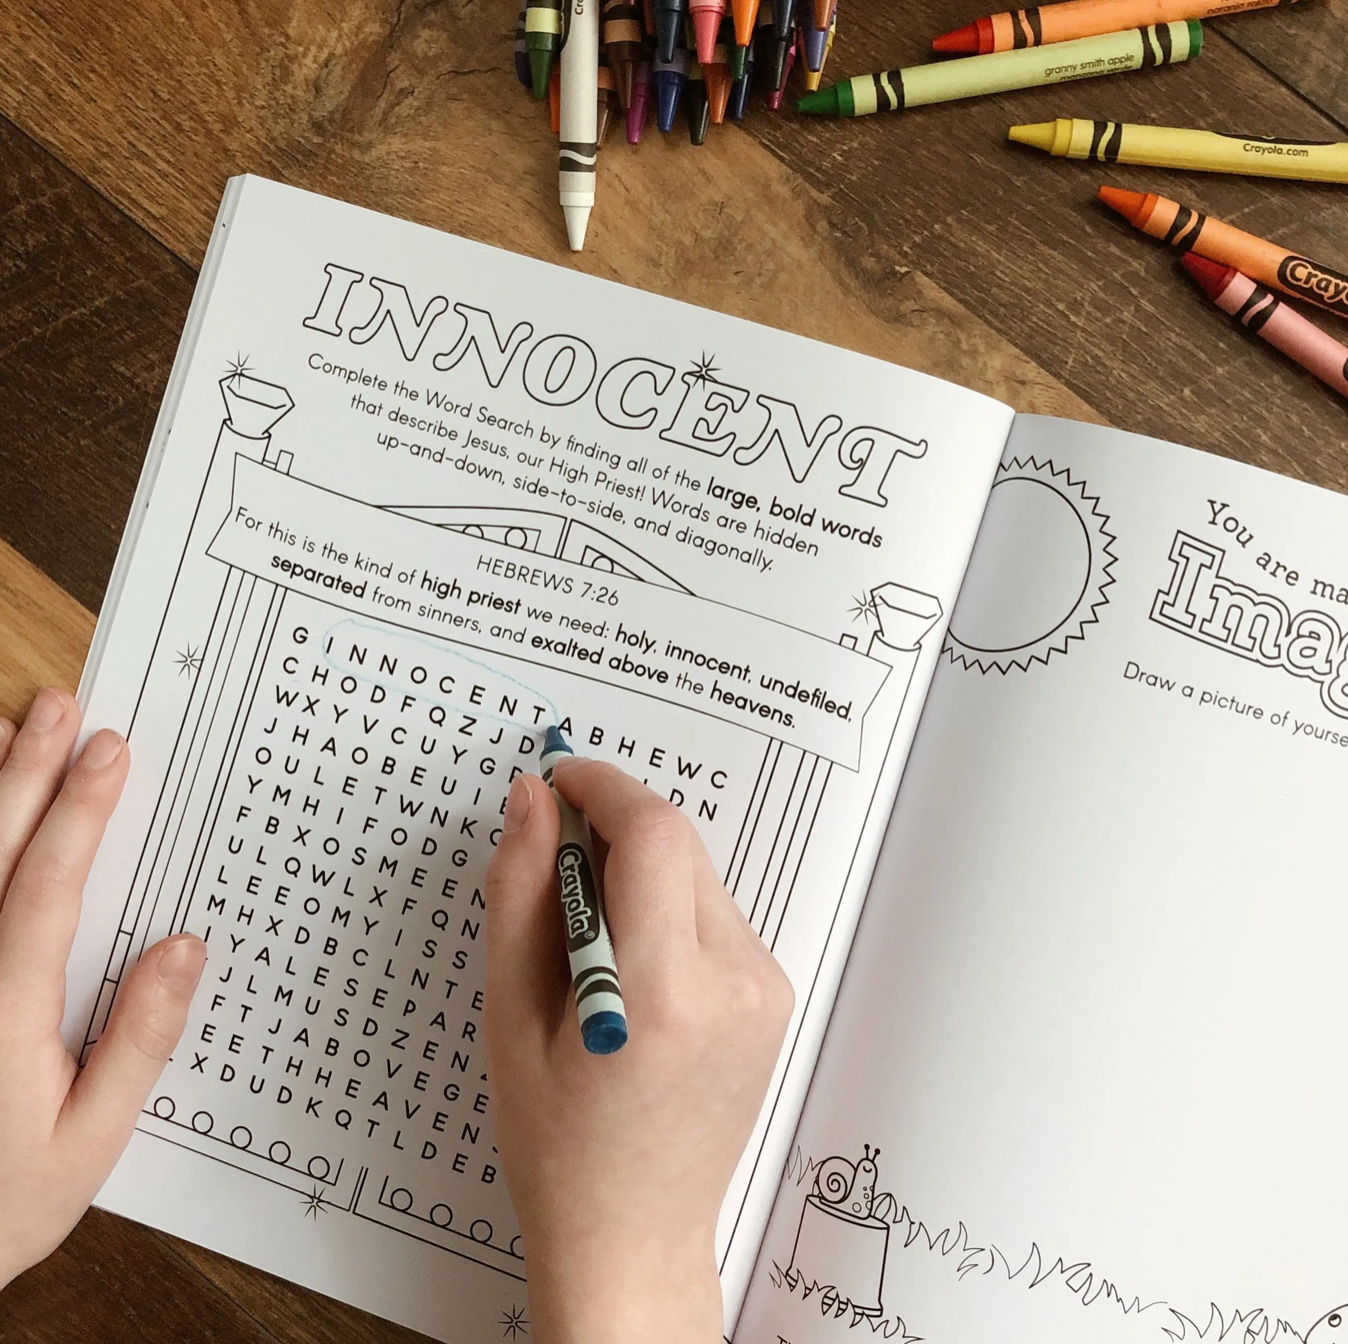 Crayola.com
granny smith apple
INNOCENT
Complete the Word Search by finding all of the large, bold words
that describe Jesus, our High Priest! Words are hidden
up-and-down, side-to-side, and diagonally.
HEBREWS 7:26
For this is the kind of high priest we need: holy, innocent, undefiled,
separated from sinners, and exalted above the heavens.
G I N N O C E N T A B H E W C
C H O D F Q Z J D D N
W X Y V C U Y G
J H A O B E U I
O U L E T W N K
Y M H I F O D G
F B X O S M E E N
U L Q W L X F Q N
L E E O M Y I S S
M H X D B C L N T E
Y A L E S E P A R
J L M U S D Z E N
F T J A B O V E G E
E E T H H E A V E N
X D U D K Q T L D E B
Crayola
You are ma
Imag
Draw a picture of yourse